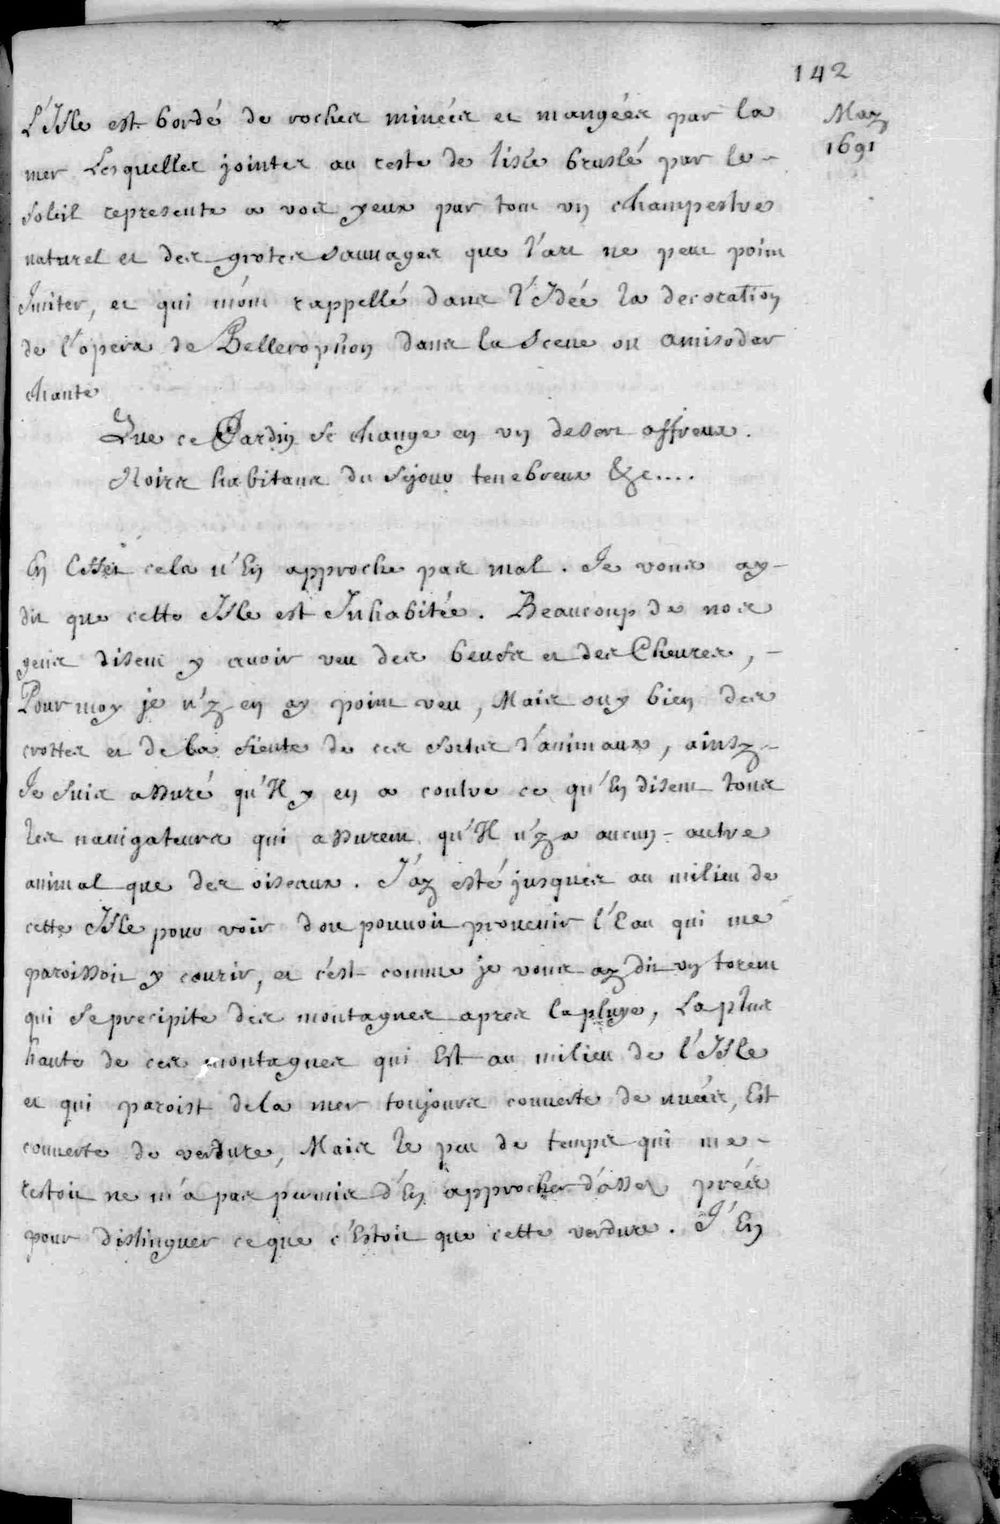 142
May
1691
L'Isle est bordé de roches minéés et mangéés par la
mer Lesquelles jointes au reste de lisle bruslé par le-
soleil represente a vos yeux par tout un champestre
naturel et des grotes sauuages que l'art ne peut point
Imiter, et qui m'ont rappellé dans l'Idée la decoration
de l'opera de Bellerophon dans la scene ou amisodar
chante
Que ce Jardin se change en un desert affreux.
Noirs habitans du sejour tenebreux &c....
En effet cela n'En approche pas mal. Je vous ay-
dit que cette Isle est Inhabitée. Beaucoup de nos
gens disent y auoir veu des beufs et des Cheures,-
Pour moy je n'y en ay point veu, Mais ouy bien des
crottes et de la fiente de ces sortes d'animaux, ainsy-
Je suis assuré qu'Il y en a contre ce qu'En disent tous
les nauigateurs qui assurent qu'Il n'y a aucun-autre
animal que des oiseaux. J'ay esté jusques au milieu de
cette Isle pour voir d'ou pouuoit prouenir l'Eau qui me
paroissoit y courir, et c'est comme je vous ay dit un torent
qui se precipite des montagnes apres la pluye, La plus
haute de ces montagnes qui Est au milieu de l'Isle
et qui paroist de la mer toujours couuerte de nuées, Est
couuerte de verdure, Mais le peu de temps qui me-
restoit ne m'a pas permis d'En approcher d'assez prés
pour distinguer ce que c'Estoit que cette verdure. J'En